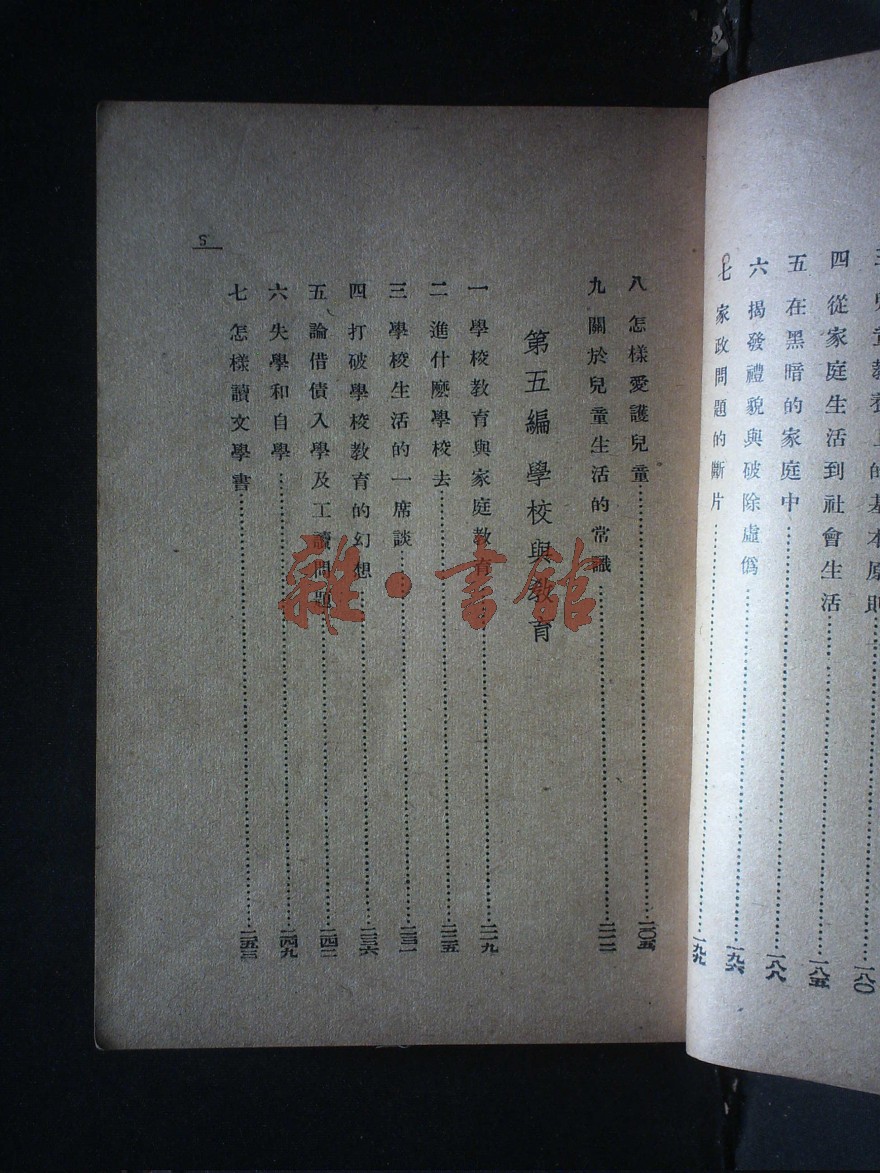 三 兒童教養上的基本原則……一八〇
四 從家庭生活到社會生活……一八五
五 在黑暗的家庭中……一八八
六 揭發禮貌與破除虛僞……一九六
七 家政問題的斷片……一九九
八 怎樣愛護兒童……二〇五
九 關於兒童生活的常識……二一二
第五編 學校與教育
一 學校教育與家庭教育……二一九
二 進什麽學校去……二二五
三 學校生活的一席談……二三一
四 打破學校教育的幻想……二三六
五 論借債入學及工讀問題……二四二
六 失學和自學……二四九
七 怎樣讀文學書……二五三
5
雜·書館